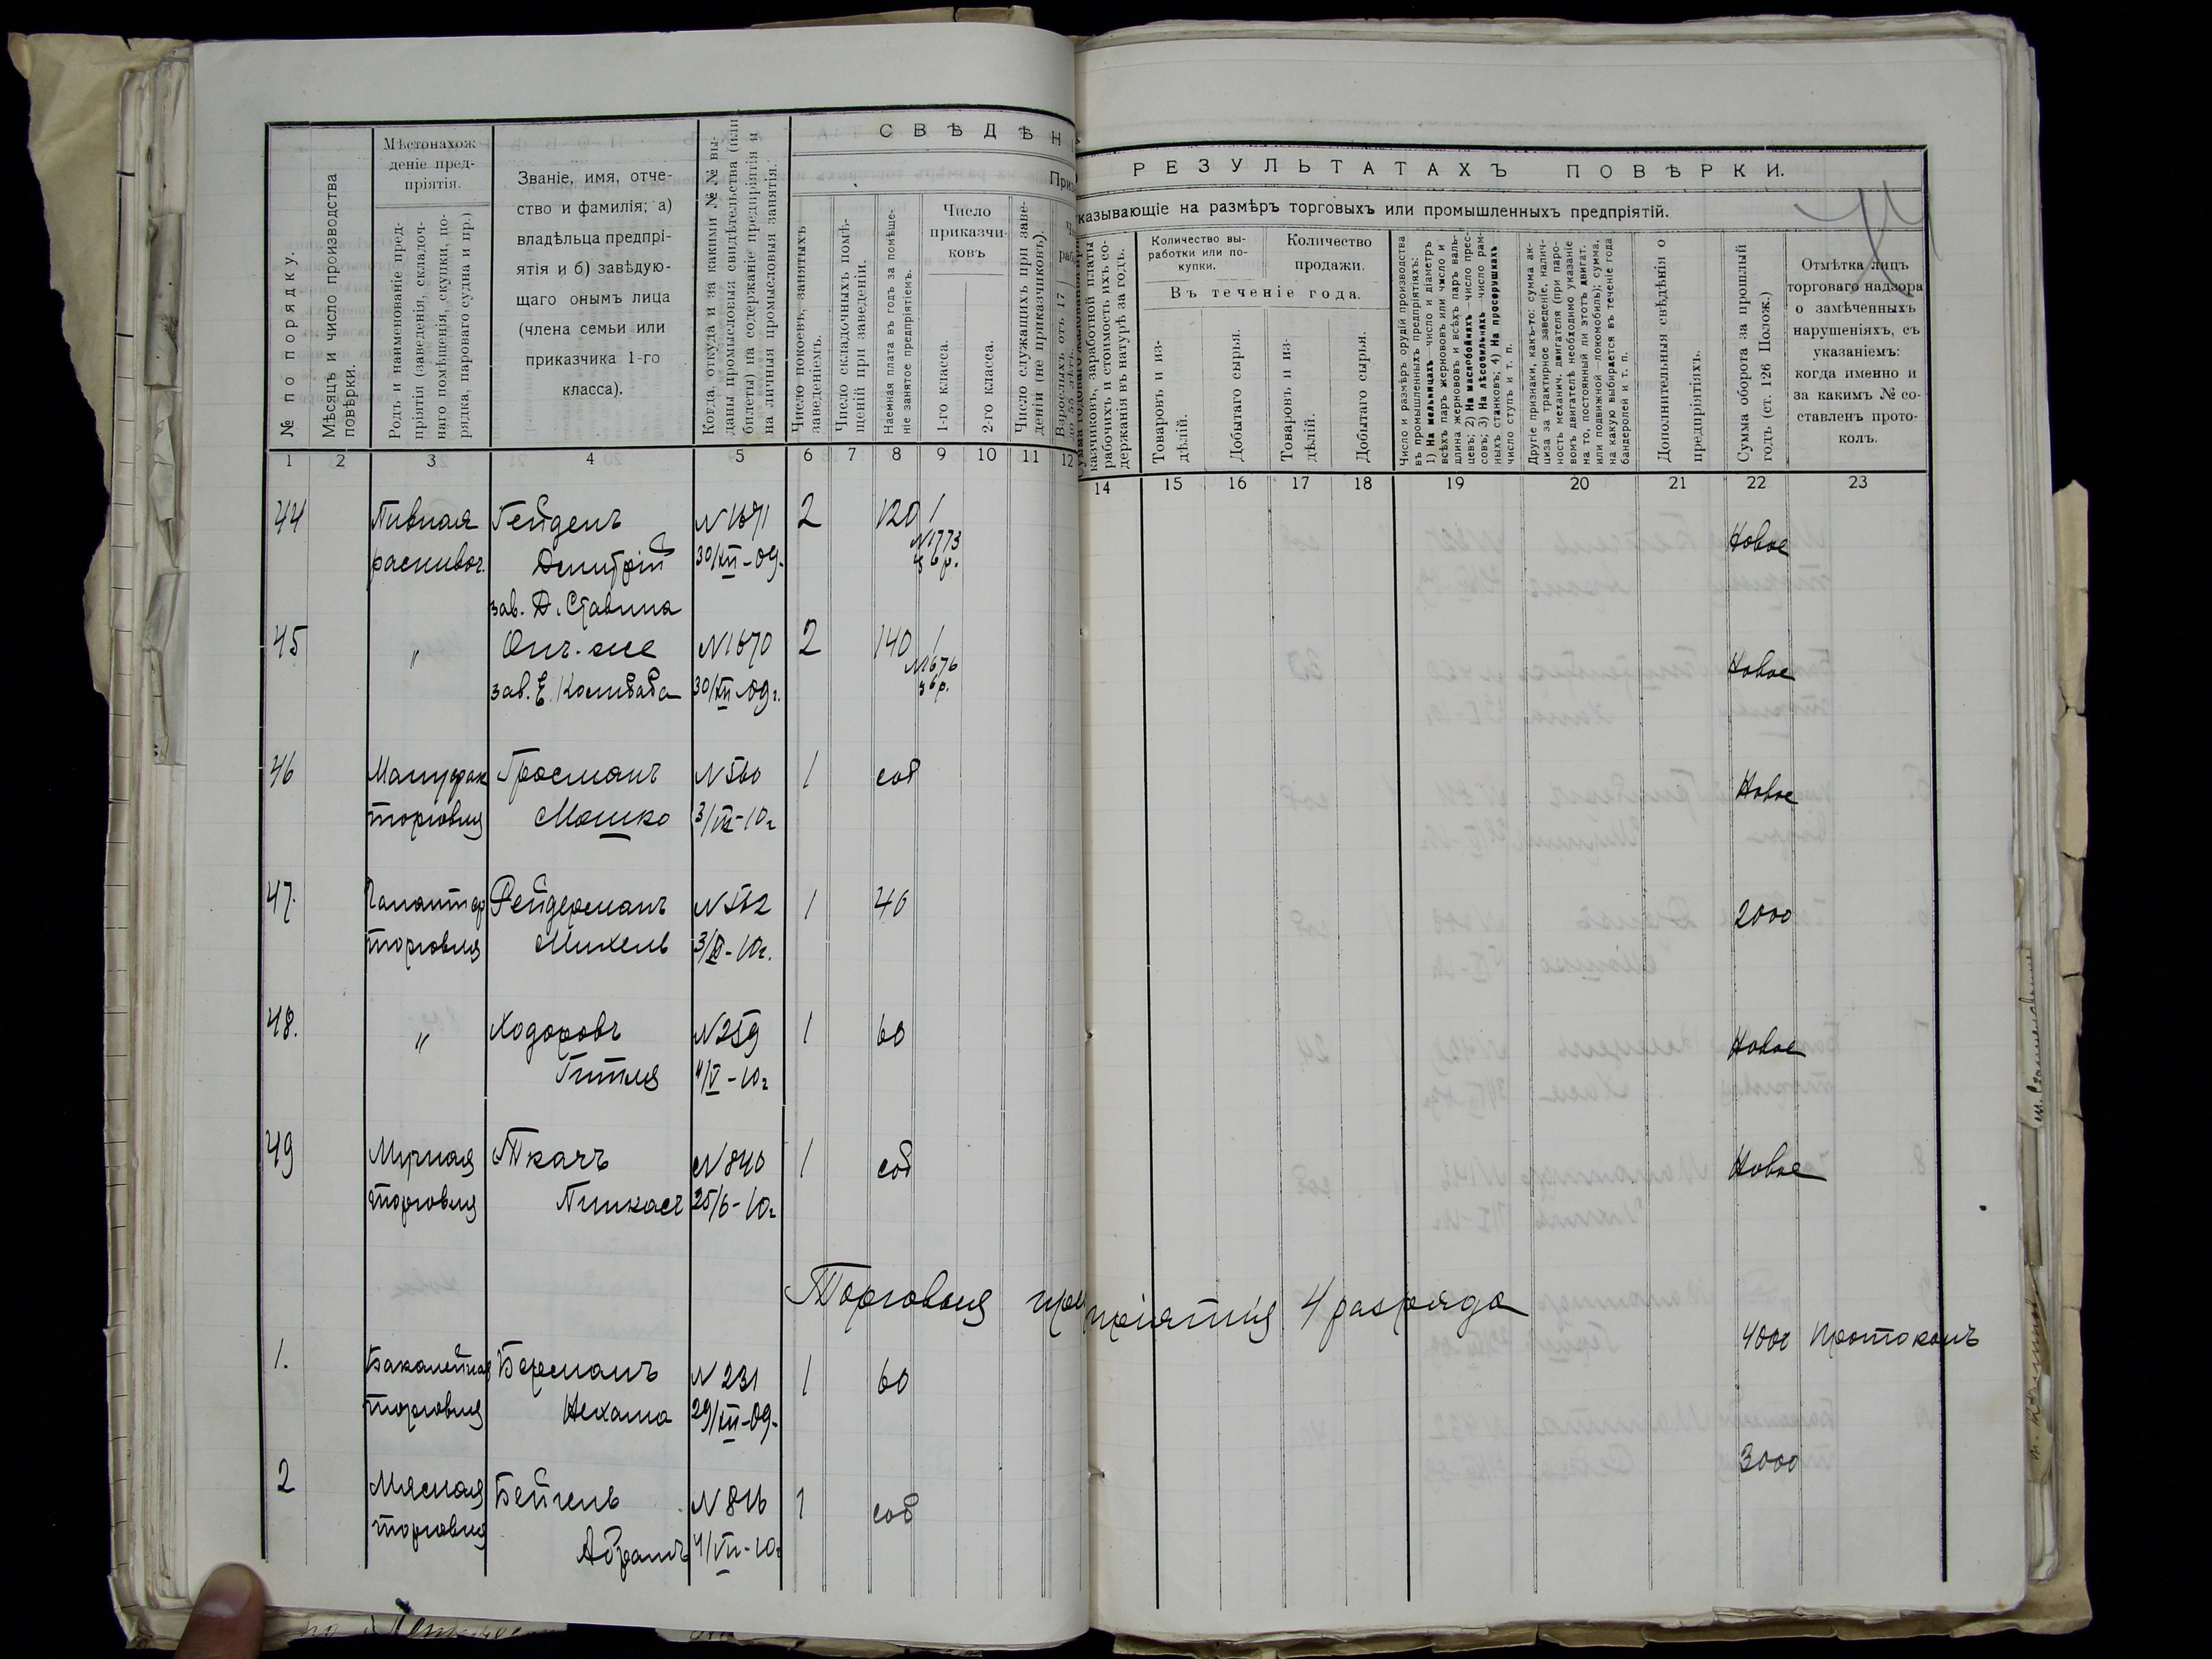 СВѢДѢН
РЕЗУЛЬТАТАХЪ ПОВѢРКИ.
казывающіе на размѣръ торговыхъ или промышленныхъ предпріятій.
№ по порядку.
Мѣсяцъ и число производства
повѣрки.
Мѣстонахож
деніе пред-
пріятія.
Родъ и наименованіе пред-
пріятія (заведенія, складоч-
наго помѣщенія, скупки, по-
рядка, парового судна и пр.)
Званіе, имя, отче-
ство и фамилія; а)
владѣльца предпрі-
ятія и б) завѣдую-
щаго онымъ лица
(члена семьи или
приказчика 1-го
класса).
Когда, откуда и за какими №№ вы-
даны промысловыя свидѣтельства (или
билеты) на содержаніе предпріятія и
на личныя промысловыя занятія.
Число покоевъ, занятыхъ
заведеніемъ.
Число складочныхъ помѣ-
щеній при заведеніи.
Наемная плата въ годъ за помѣще-
ніе занятое предпріятіемъ.
Число
приказчи-
ковъ
1-го класса.
2-го класса.
Число служащихъ при заве-
деніи (не приказчиковъ).
Взрослыхъ отъ 17
до 55 лѣтъ.
казчиковъ, заработной платы
рабочихъ и стоимость ихъ со-
держанія въ натурѣ за годъ.
Количество вы-
работки или по-
купки.
Количество
продажи.
Въ теченіе года.
Товаровъ и из-
дѣлій.
Добытаго сырья.
Товаровъ и из-
дѣлій.
Добытаго сырья.
Число и размѣръ орудій производства
въ промышленныхъ предпріятіяхъ:
1) На мельницахъ—число и діаметръ
всѣхъ паръ жернововъ или число и
длина жернововъ и всѣхъ паръ валь-
цевъ; 2) На маслобойняхъ—число прес-
совъ; 3) На лѣсопильняхъ—число рам-
ныхъ станковъ; 4) На просорушкахъ
число ступъ и т. п.
Другіе признаки, какъ-то: сумма ак-
циза за трактирное заведеніе, налич-
ность механич. двигателя (при паро-
вомъ двигателѣ необходимо указаніе
на то, постоянный ли этотъ двигат.
или подвижной—локомобиль); сумма,
на какую выбирается въ теченіе года
бандеролей и т. п.
Дополнительныя свѣдѣнія о
предпріятіяхъ.
Сумма оборота за прошлый
годъ (ст. 126 Полож.)
Отмѣтка лицъ
торговаго надзора
о замѣченныхъ
нарушеніяхъ, съ
указаніемъ:
когда именно и
за какимъ № со-
ставленъ прото-
колъ.
1 2 3 4 5 6 7 8 9 10 11 12 14 15 16 17 18 19 20 21 22 23
44 Пивная Гейденъ N1671 2 120 1 Новое
распивоч. Дмитрій 30/XII-09. N1773
6 р.
зав. Д. Ставина
45 " Онъ-же N1670 2 140 1 Новое
зав. Е. 30/XII-09г. N1676
6 р.
46 Мануфак Гросманъ N560 1 соб Новое
торговля Мошко 3/VI-10г
47. Галантер Рейдерманъ N562 1 40 2000
торговля Михель 3/VI-10г.
48. " Ходоровъ N259 1 60 Новое
Гитля 4/V-10г
49 Мучная Ткачъ N840 1 соб Новое
торговля Пинкасъ 25/6-10г
Торговыя предпріятія 4 разряда
1. Бакалейная Берманъ N231 1 60 4000 Протоколъ
торговля Нехама 29/XII-09.
2 Мясная Бейгель N816 1 соб 3000
торговля Абрамъ 4/VII-10г